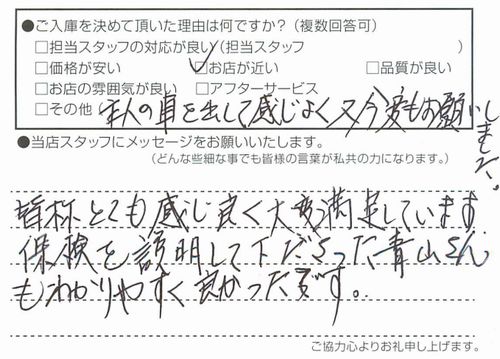 ●ご入庫を決めて頂いた理由は何ですか？（複数回答可）
□担当スタッフの対応が良い（担当スタッフ　　　　　）
□価格が安い　☑お店が近い　□品質が良い
□お店の雰囲気が良い　□アフターサービス
□その他（主人の車を出して感じよく又今度もお願いしました。
●当店スタッフにメッセージをお願いいたします。
（どんな些細な事でも皆様の言葉が私共の力になります。）
皆称とても感じ良く大変満足しています
保険を説明して下だらった青山さん
もわかりやすく良かったです。
ご協力心よりお礼申し上げます。